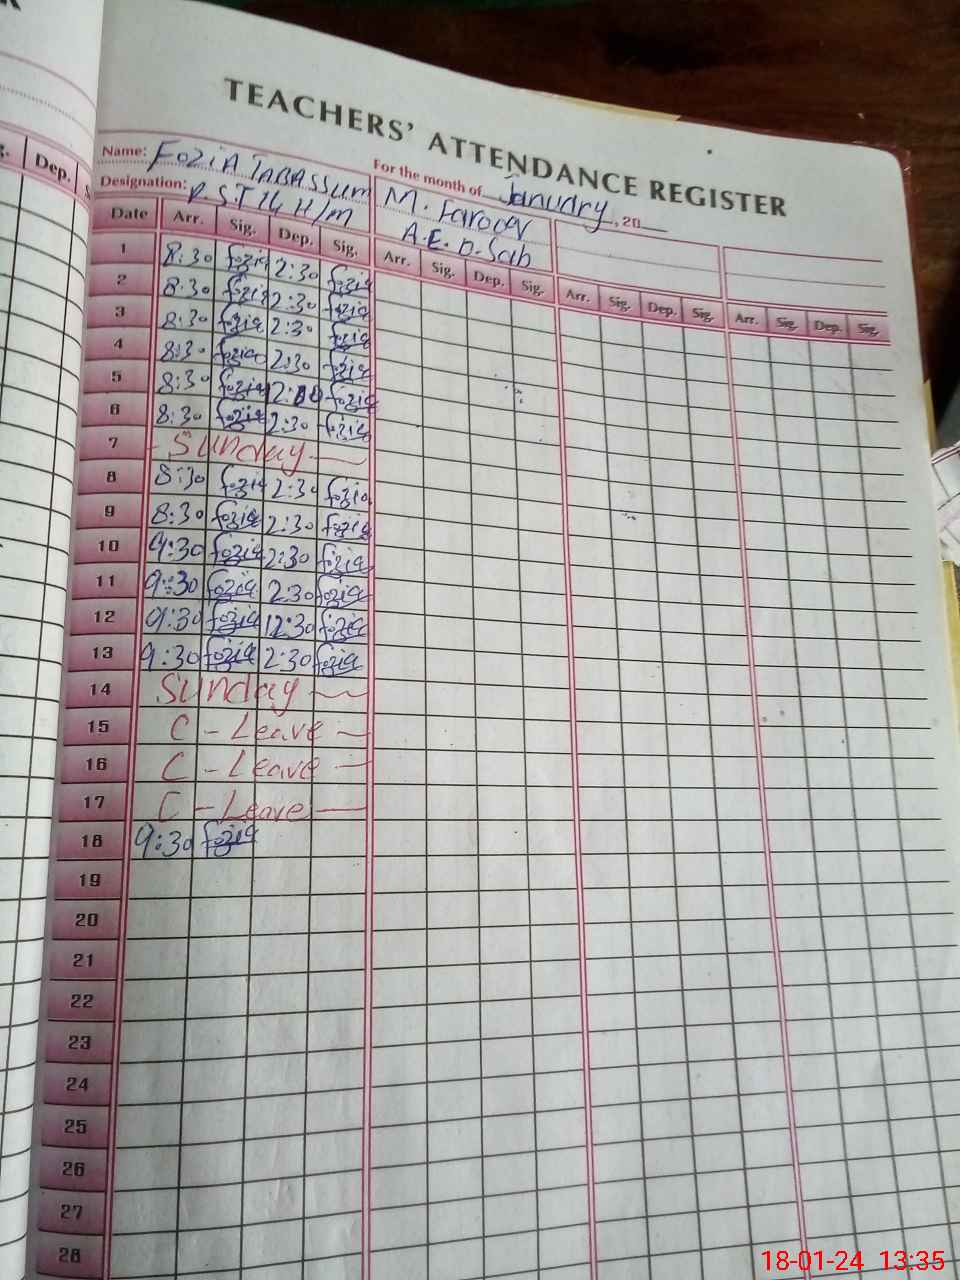 TEACHERS' ATTENDANCE REGISTER
Name: FOZIA TABASSUM
For the month of January, 20
Designation: P.S.T 14 H/M
M. Farooq
A.E.O. Sab
Date Arr. Sig. Dep. Sig. Arr. Sig. Dep. Sig. Arr. Sig. Dep. Sig. Arr. Sig. Dep. Sig.
1 8:30 fozia 2:30 fozia
2 8:30 fozia 2:30 fozia
3 8:30 fozia 2:30 fozia
4 8:30 fozia 2:30 fozia
5 8:30 fozia fozia
6 8:30 fozia 2:30 fozia
7 Sunday
8 8:30 fozia 2:30 fozia
9 8:30 fozia 2:30 fozia
10 9:30 fozia 2:30 fozia
11 9:30 fozia 2:30 fozia
12 9:30 fozia 12:30 fozia
13 9:30 fozia 2:30 fozia
14 Sunday
15 C - Leave
16 C - Leave
17 C - Leave
18 9:30 fozia
19
20
21
22
23
24
25
26
27
28
Dep.
18-01-24 13:35